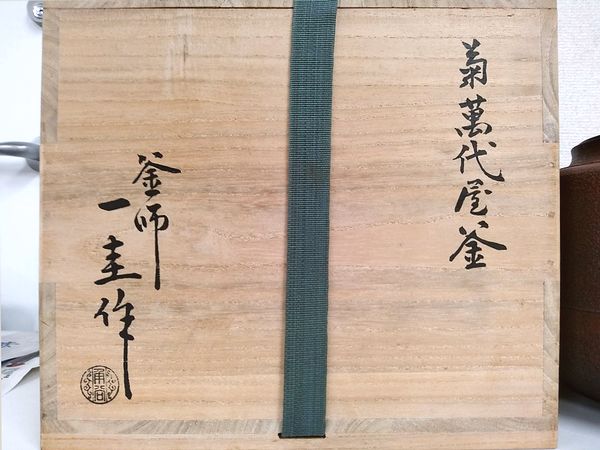 菊萬代屋釜
釜師
一圭作
角谷